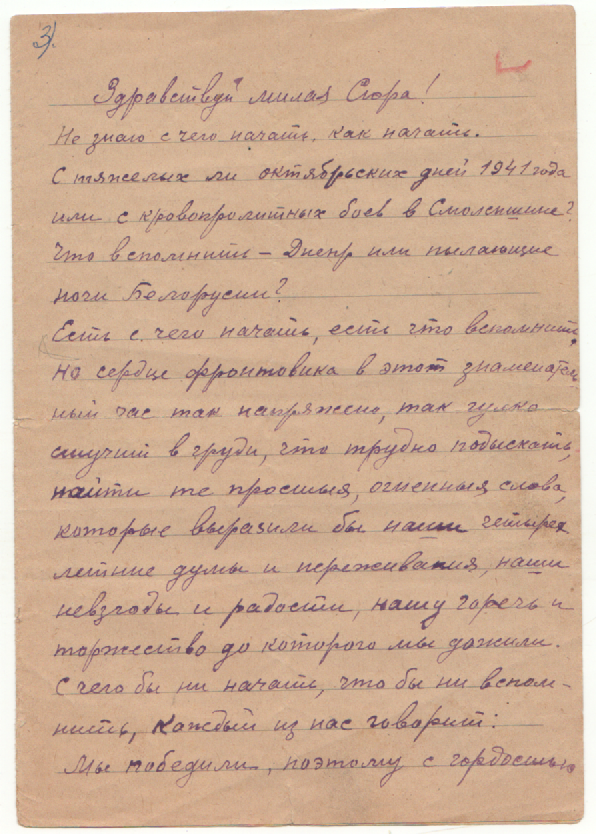 3).
Здравствуй милая Сюра!
Не знаю с чего начать, как начать.
С тяжелых ли октябрьских дней 1941 года
или с кровопролитных боев в Смоленщине?
Что вспомнить – Днепр или пылающие
ночи Белорусии?
Есть с чего начать, есть что вспомнить,
но сердце фронтовика в этот знаменатель
ный час так напряжено, так гулко
стучит в груди, что трудно подыскать,
найти те простыя, огненныя слова,
которые выразили бы наши четырех
летние думы и переживания, наши
невзгоды и радости, нашу горечь и
торжество до которого мы дожили.
С чего бы ни начать, что бы ни вспом-
нить, каждый из нас говорит:
Мы победили, поэтому с гордостью